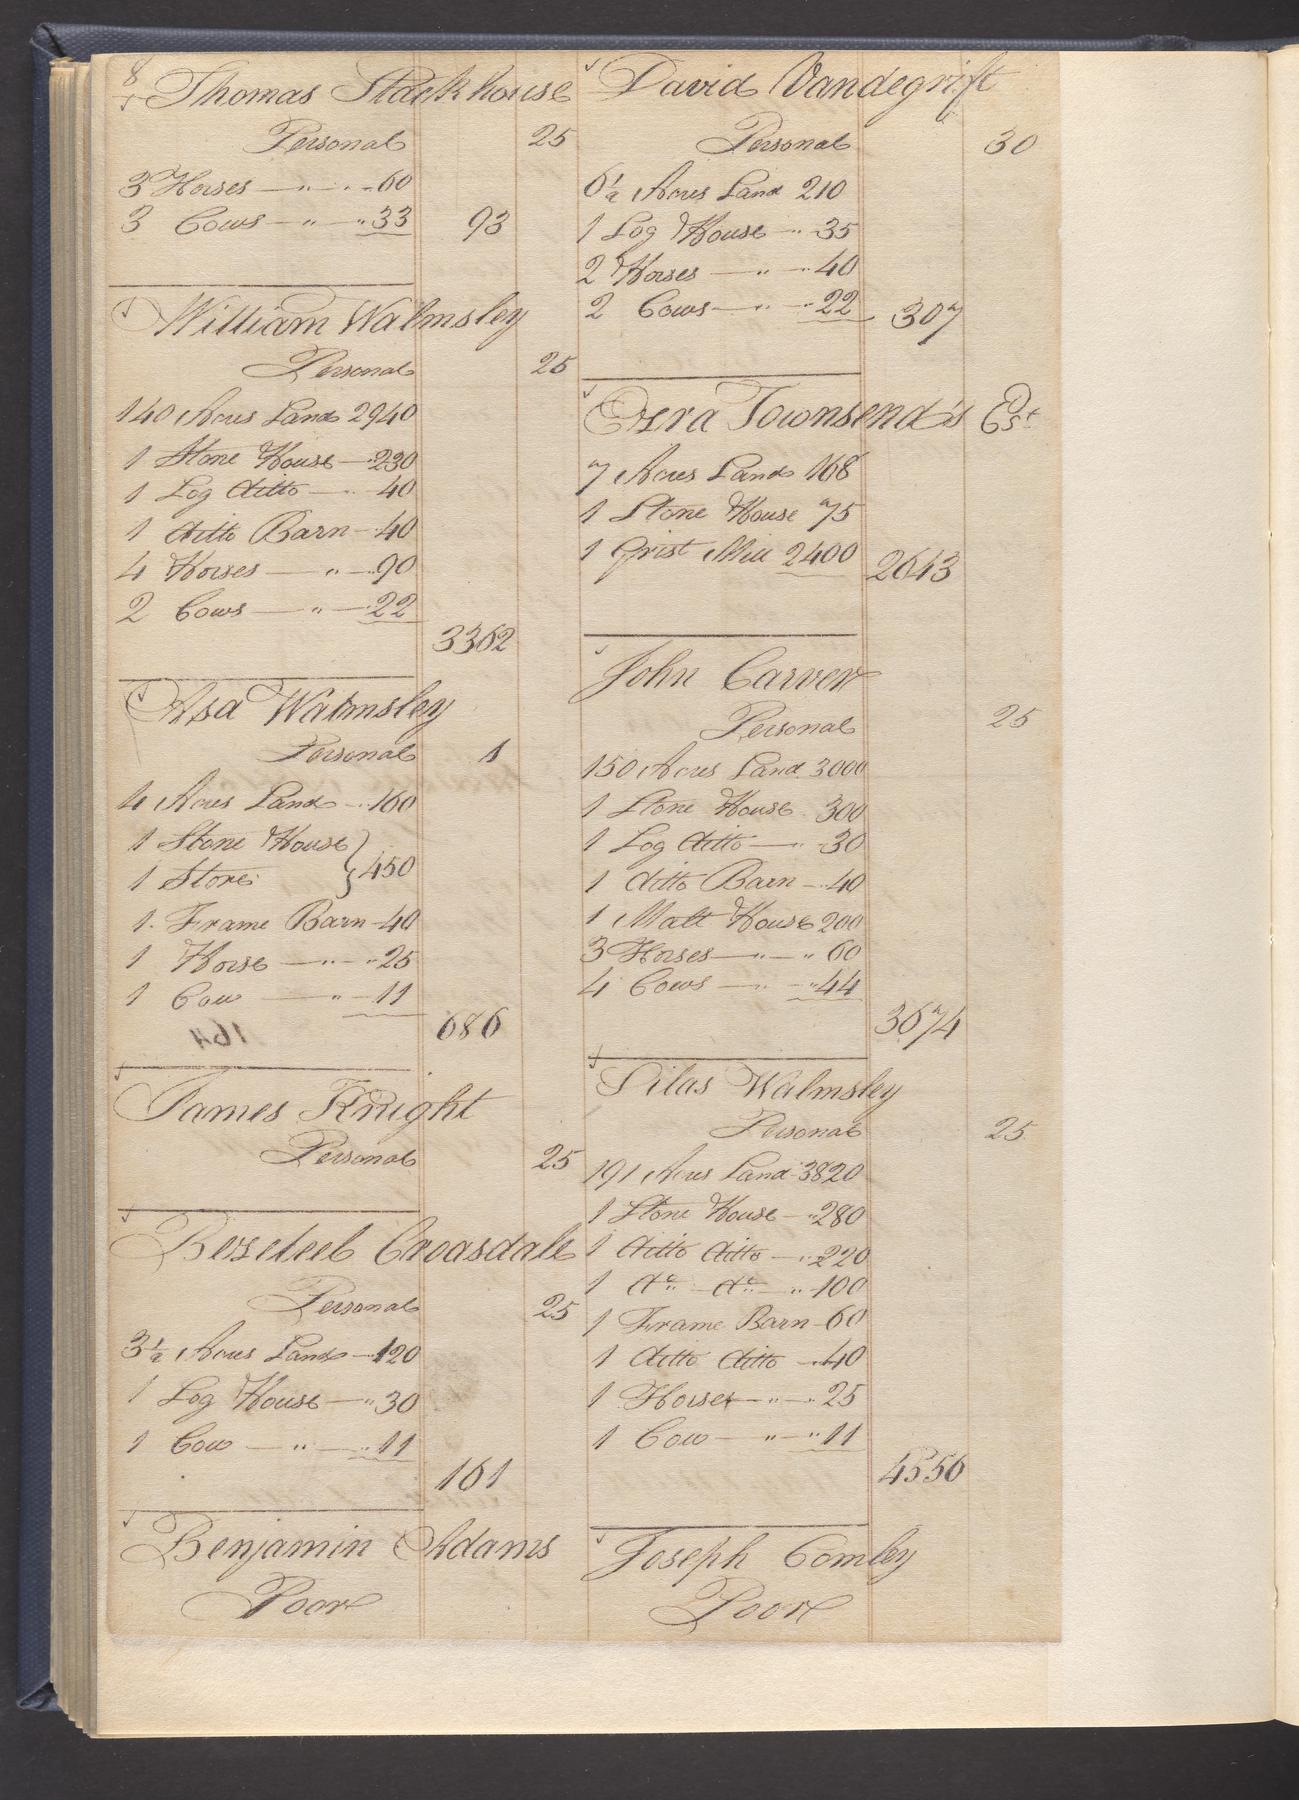 8
Thomas Stackhouse
Personal 25
3 Horses — " - - 60
3 Cows — " — " 33 93
William Walmsley
Personal 25
140 Acres Land 2940
1 Stone House — 230
1 Log ditto — 40
1 ditto Barn — 40
4 Horses — " — 90
2 Cows — " — 22
3362
Asa Walmsley
Personal 1
4 Acres Land — 160
1 Stone House
1 Store } 450
1 Frame Barn — 40
1 Horse — " — " 25
1 Cow — " — 11
686
164
James Knight
Personal 25
Bezeleel Croasdale
Personal 25
3½ Acres Land — 120
1 Log House — " 30
1 Cow — " — 11
161
Benjamin Adams
Poor
David Vandegrift
Personal 30
6½ Acres Land 210
1 Log House — " 35
2 Horses — " — 40
2 Cows — " — " 22 307
Ezra Townsend's Est
7 Acres Land 168
1 Stone House 75
1 Grist Mill 2400 2643
John Carver
Personal 25
150 Acres Land 3000
1 Stone House 300
1 Log ditto — " 30
1 ditto Barn — 40
1 Malt House 200
3 Horses — " — " 60
4 Cows — " — " 44
3674
Silas Walmsley
Personal 25
191 Acres Land 3820
1 Stone House — " 280
1 ditto ditto — " 220
1 do do " 100
1 Frame Barn — 60
1 ditto ditto — 40
1 Horse — " — " 25
1 Cow — " — " 11
4556
Joseph Comley
Poor